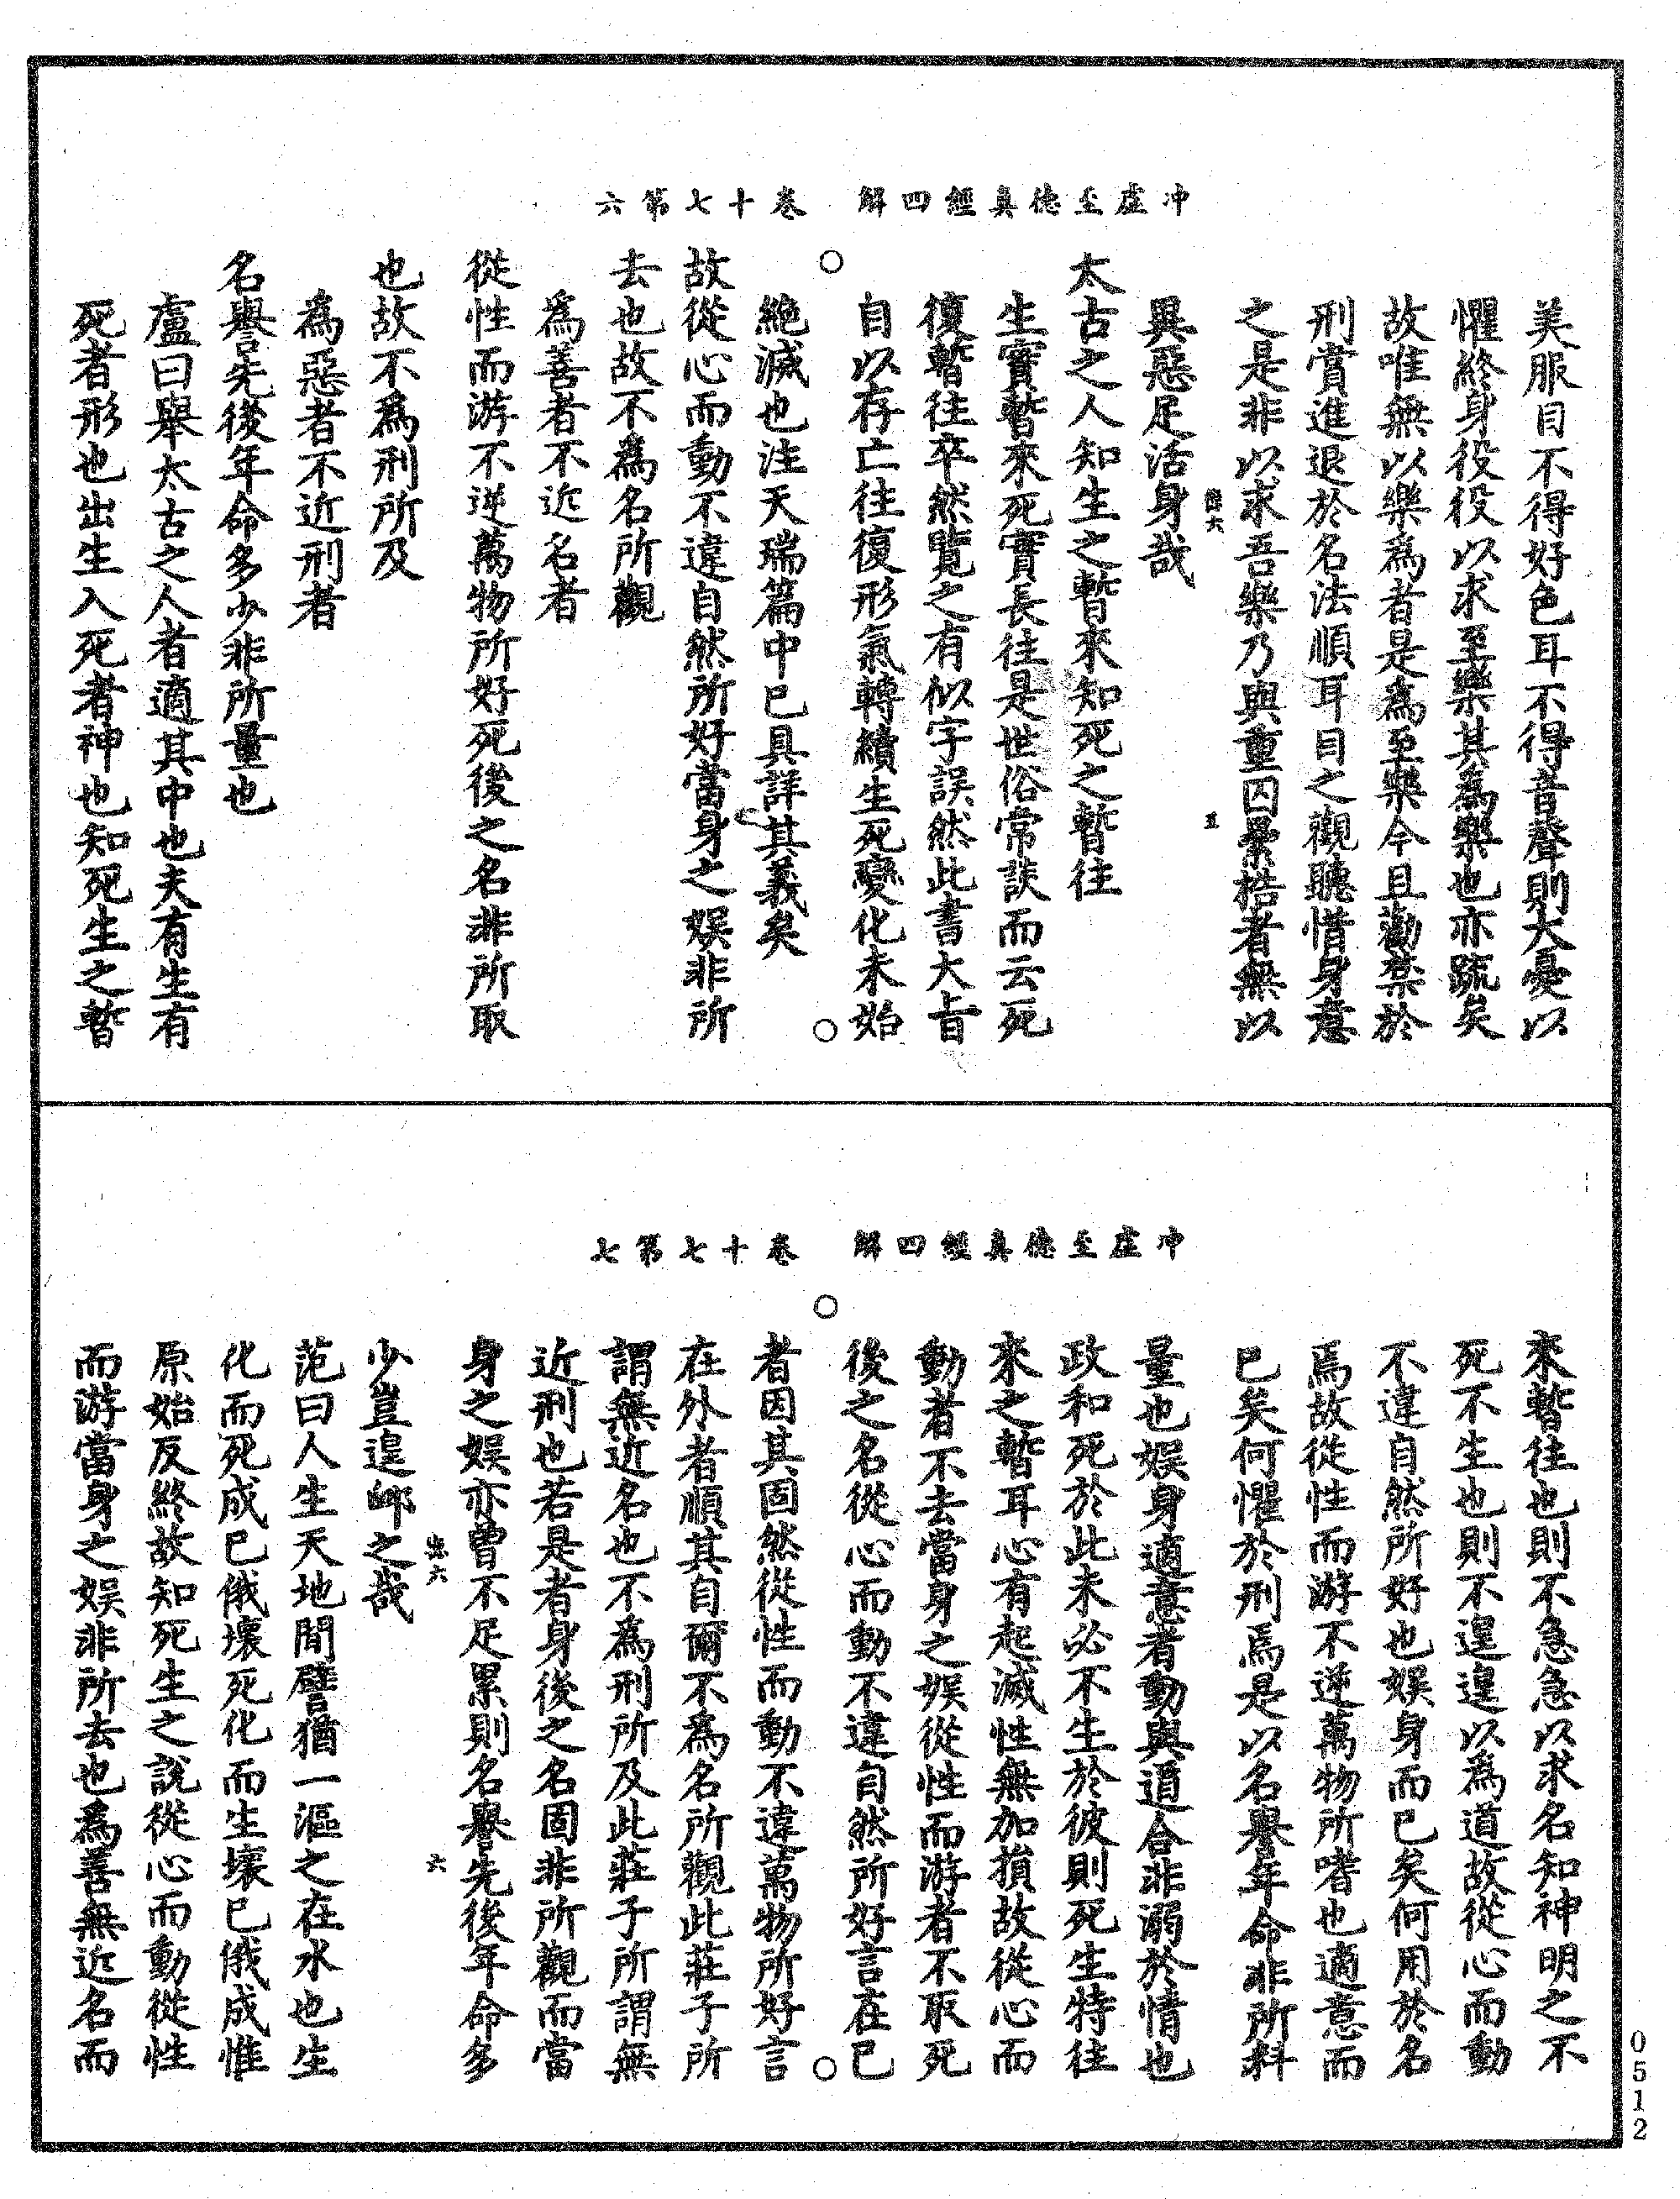 冲虛至德真經四解　卷十七第六
美服目不得好色耳不得音聲則大憂以
懼終身役役以求至樂其為樂也亦疏矣
故唯無以樂為者是為至樂今且勸禁於
刑賞進退於名法順耳目之觀聽惜身意
之是非以求吾樂乃與重囚纍梏者無以
異惡足活身哉
太古之人知生之暫來知死之暫往
生實暫來死實長往是世俗常談而云死
復暫往卒然覽之有似字誤然此書大旨
自以存亡往復形氣轉續生死變化未始
絶滅也注天瑞篇中已具詳其義矣
故從心而動不違自然所好當身之娛非所
去也故不為名所觀
為善者不近名者
從性而游不逆萬物所好死後之名非所取
也故不為刑所及
為惡者不近刑者
名譽先後年命多少非所量也
盧曰舉太古之人者適其中也夫有生有
死者形也出生入死者神也知死生之暫
冲虛至德真經四解　卷十七第七
來暫往也則不急急以求名知神明之不
死不生也則不遑遑以為道故從心而動
不違自然所好也娛身而已矣何用於名
焉故從性而游不逆萬物所嗜也適意而
已矣何懼於刑焉是以名譽年命非所料
量也娛身適意者動與道合非溺於情也
政和死於此未必不生於彼則死生特往
來之暫耳心有起滅性無加損故從心而
動者不去當身之娛從性而游者不取死
後之名從心而動不違自然所好言在已
者因其固然從性而動不違萬物所好言
在外者順其自爾不為名所觀此莊子所
謂無近名也不為刑所及此莊子所謂無
近刑也若是者身後之名固非所觀而當
身之娛亦曾不足累則名譽先後年命多
少豈遑邮之哉
范曰人生天地間譬猶一漚之在水也生
化而死成已俄壞死化而生壞已俄成惟
原始反終故知死生之說從心而動從性
而游當身之娛非所去也為善無近名而
0512